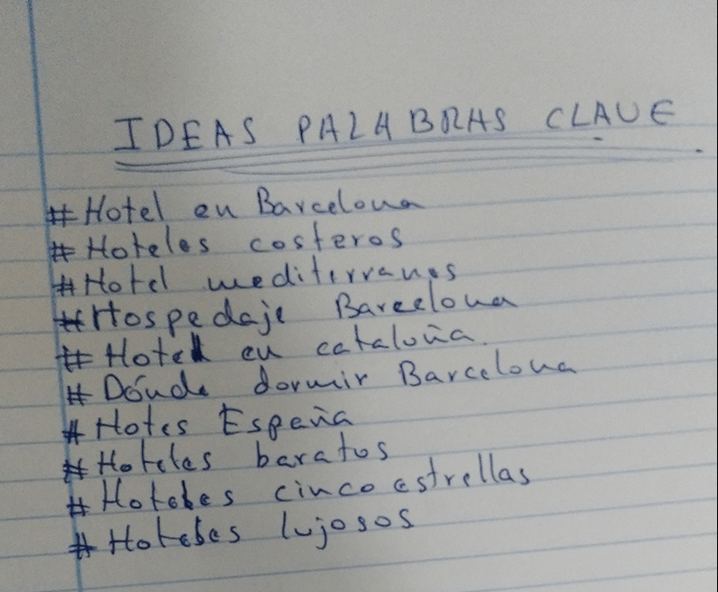 IDEAS PALABRAS CLAVE
#Hotel en Barcelona
#Hoteles costeros
#Hotel mediterranos
#Hospedaje Barcelona
#Hotel en cataluña.
#Dónde dormir Barcelona
#Hotes España
#Hoteles baratos
#Hoteles cinco estrellas
#Hoteles lujosos